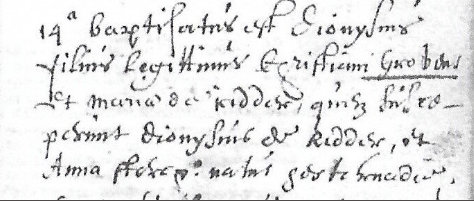 14ª baptisatus est Dionysius
filius legittimus Christiani Grobens
et Maria de Ridder, quem susce-
perunt Dionysius de Ridder, et
Anna natus hesterna die.